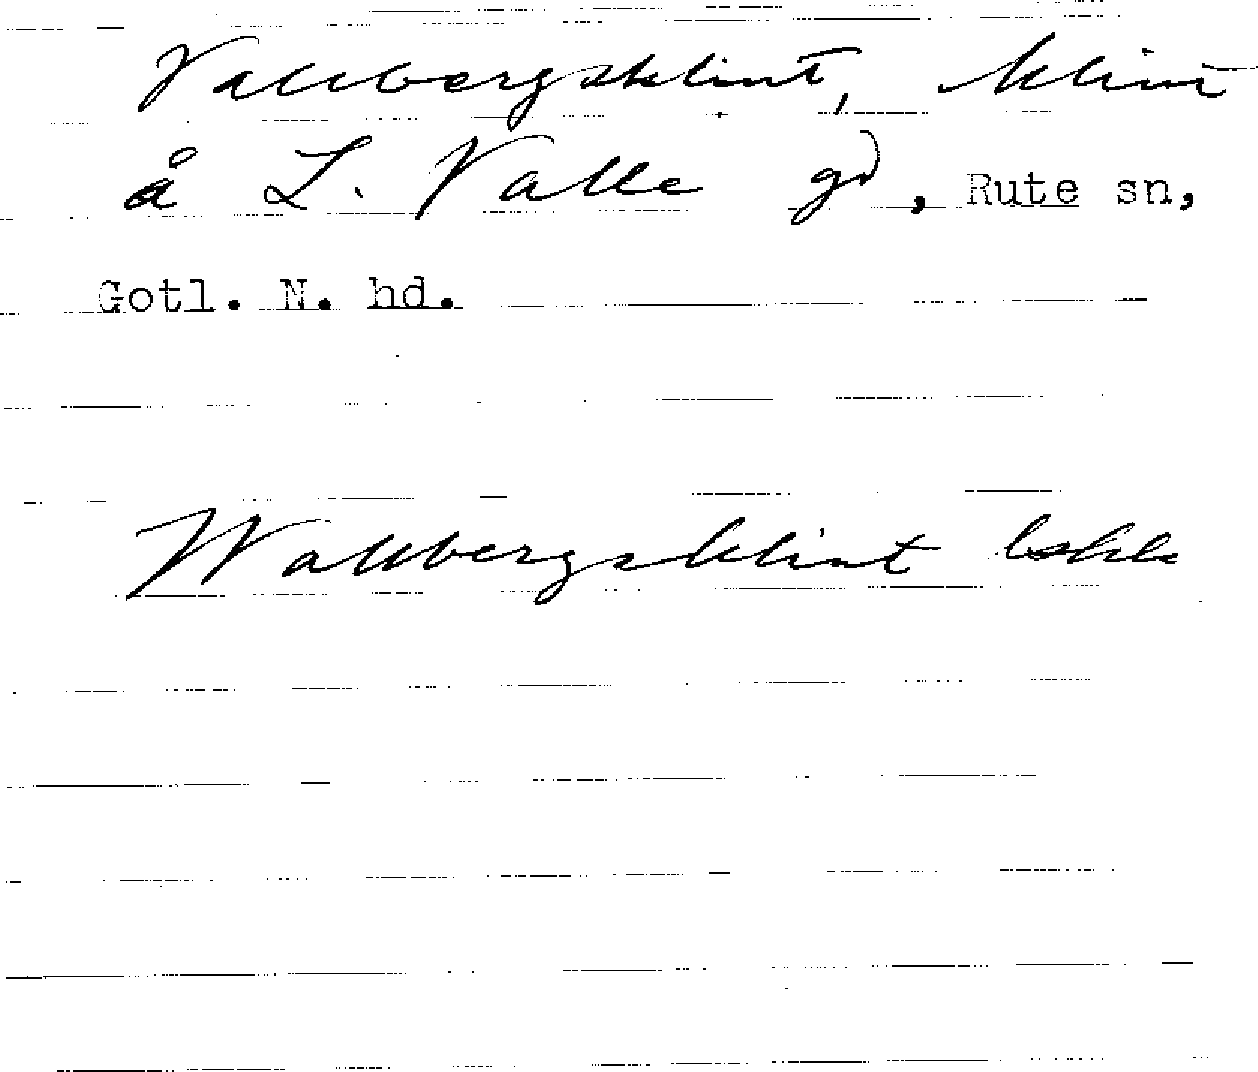 Vallbergsklint, klint
å L. Valle gd, Rute sn,
Gotl. N. hd.
Wallbergsklint